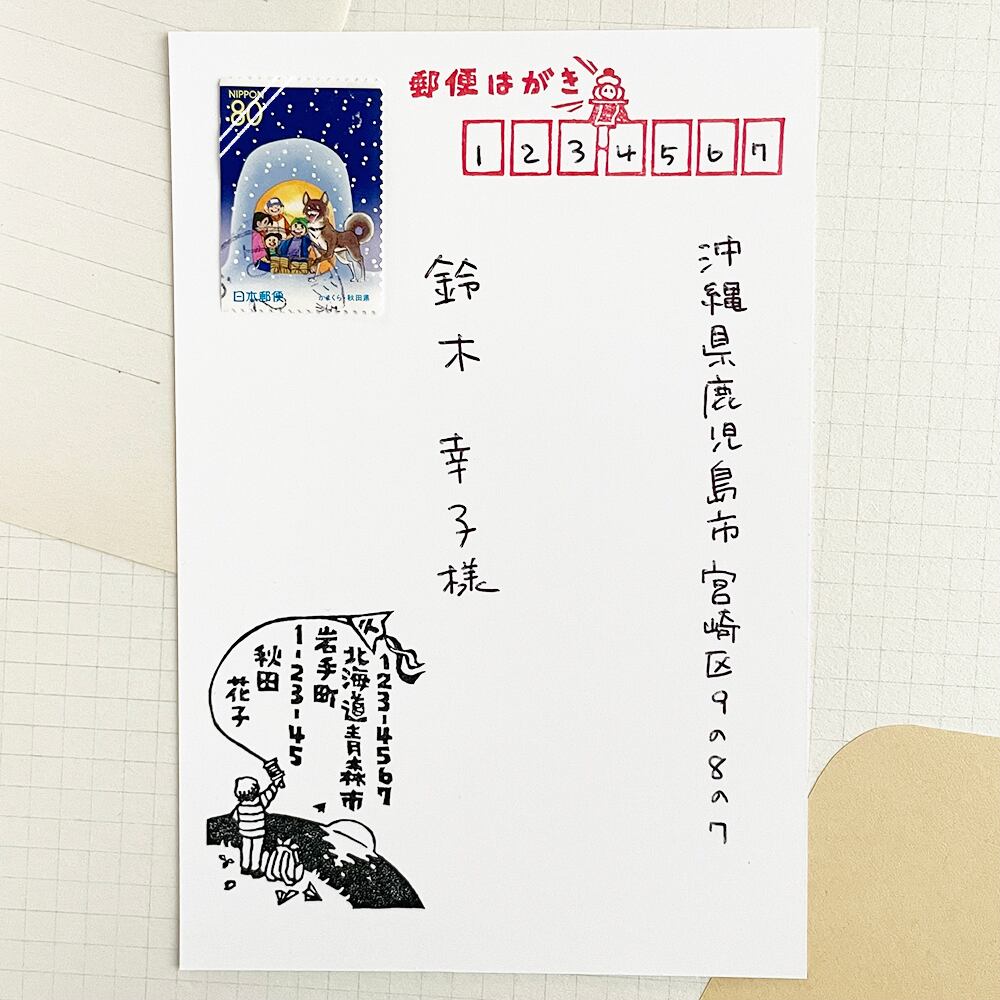 郵便はがき
1234567
NIPPON
80
日本郵便
かまくら・秋田県
沖縄県鹿児島市宮崎区9の8の7
鈴木 幸子様
123-4567
北海道青森市
岩手町
1-23-45
秋田 花子